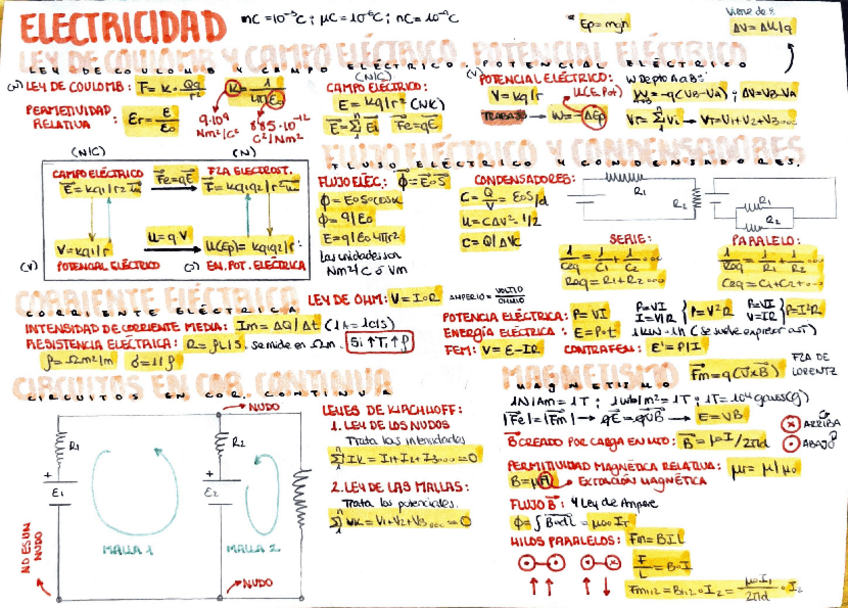 ELECTRICIDAD
mC = 10⁻³C ; μC = 10⁻⁶C ; nC = 10⁻⁹C
* Ep = mgh
Viene de :
ΔV = ΔU/q
LEY DE COULOMB Y CAMPO ELÉCTRICO. POTENCIAL ELÉCTRICO
LEY DE COULOMB: F = K · Qq/r²
K = 1/4πε₀
9·10⁹ Nm²/C²
8'85·10⁻¹² C²/Nm²
PERMITIVIDAD RELATIVA : εr = ε/ε₀
(N/C)
CAMPO ELÉCTRICO:
E = Kq/r² (N/C)
E = Σ Ei
Fe = qE
(V)
POTENCIAL ELÉCTRICO:
V = Kq/r
U(E.Pot)
TRABAJO → W = -ΔEp
W Depto A a B:
W = -q(VB-VA) ; ΔV = VB-VA
VT = Σ Vi → VT = V1+V2+V3...
(N/C)
(N)
CAMPO ELÉCTRICO
Fe = qE
FZA ELECTROST.
E = Kq1/r² u
F = Kq1q2/r² u
V = Kq1/r
U = qV
U(Ep) = Kq1q2/r
(V)
POTENCIAL ELÉCTRICO
(J)
EN. POT. ELÉCTRICA
FLUJO ELÉCTRICO Y CONDENSADORES.
FLUJO ELÉC.: Φ = E·S
Φ = E·S·cosα
Φ = q/ε₀
E = q/ε₀4πr²
Las unidades son
Nm²/C ó Vm
CONDENSADORES:
C = Q/V = ε₀S/d
U = CΔV²·1/2
C = Q/ΔVc
R1
R2
R1
R2
SERIE:
1/Ceq = 1/C1 + 1/C2 ...
Req = R1+R2...
PARALELO:
1/Req = 1/R1 + 1/R2 ...
Ceq = C1+C2+...
CORRIENTE ELÉCTRICA
LEY DE OHM: V = I·R
AMPERIO = VOLTIO/OHMIO
INTENSIDAD DE CORRIENTE MEDIA: Im = ΔQ/Δt (1A = 1C/s)
RESISTENCIA ELÉCTRICA: R = ρL/S. se mide en Ωm. Si ↑T, ↑ρ
ρ = Ωm²/m
σ = 1/ρ
POTENCIA ELÉCTRICA: P = VI
P=VI
I=V/R
P=V²/R
P=VI
V=IR
P=I²R
ENERGÍA ELÉCTRICA : E = P·t
FEM: V = E-IR
CONTRAFEM: E' = P/I
CIRCUITOS EN COR. CONTINUA
NUDO
R1
R2
+
ε1
+
ε2
MALLA 1
MALLA 2
NO ES UN NUDO
NUDO
LEYES DE KIRCHHOFF:
1. LEY DE LOS NUDOS
Trata las intensidades
Σ IK = I1+I2+I3... = 0
2. LEY DE LAS MALLAS:
Trata los potenciales.
Σ VK = V1+V2+V3... = 0
MAGNETISMO
Fm = q(VxB)
FZA DE LORENTZ
1N/Am = 1T ; 1wb/m² = 1T ; 1T = 10⁴ gauss(g)
|Fe| = |Fm| → qE = qVB → E = VB
ⓧ ARRIBA
⊙ ABAJO
B CREADO POR CARGA EN MTO: B = μ₀I/2πd
PERMITIVIDAD MAGNÉTICA RELATIVA: μr = μ/μ₀
B = μH → EXCITACIÓN MAGNÉTICA
FLUJO B: Y Ley de Ampere
Φ = ∫B·dl = μ₀·IT
HILOS PARALELOS: Fm = BIL
F/L = B·I
Fm1,2 = B1,2·I2 = μ₀I1/2πd · I2